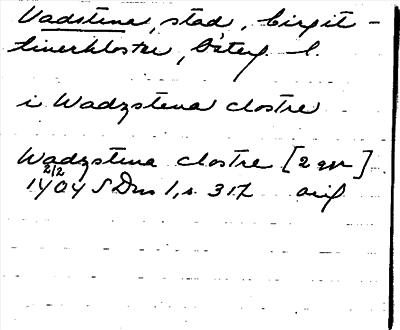 Vadstena, stad, birgit-
tinerkloster, Österg. l.
i Wadzstena clostre
Wadzstena clostre [2 ggr]
2/2
1404 SDns 1, s. 317 orig